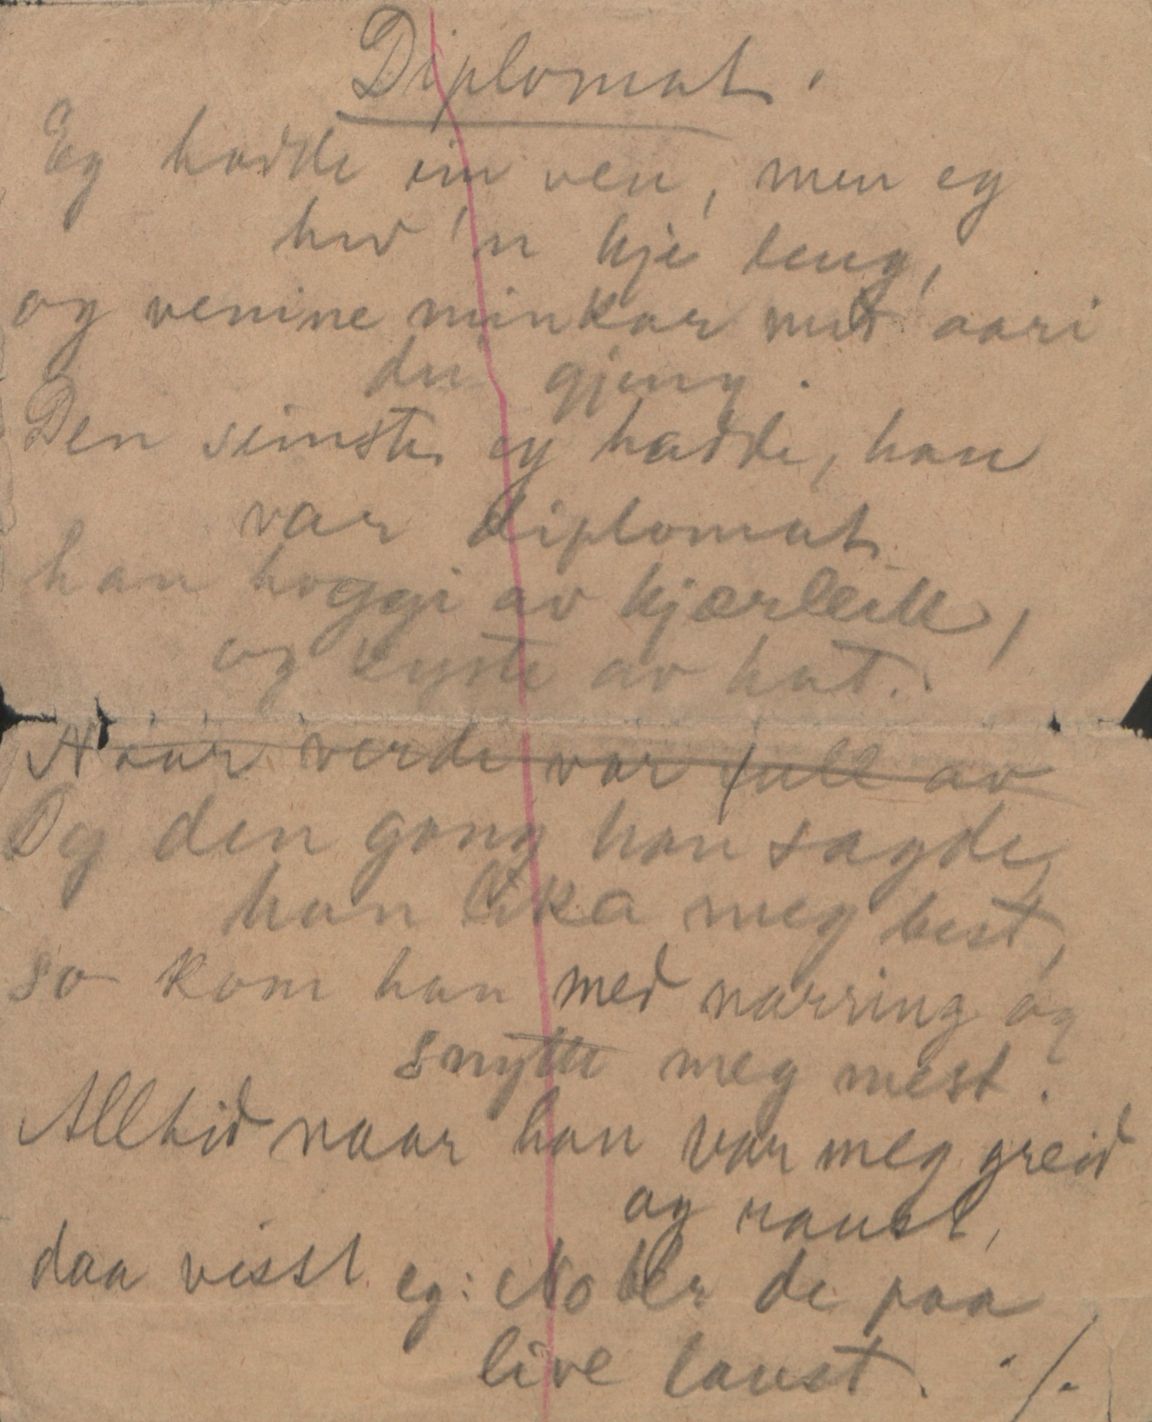 Diplomat.
Eg hadde ein ven, men eg
har 'n kje leng,
og venine minkar med aari
dei gjeng.
Den seinste eg hadde, han
var diplomat
han hoggi av kjærleik,
og kyste av hat.
Naar verdi var full av
Og den gong han sagde,
han lika meg best,
so kom han med narring og
snytte meg mest.
Alltid naar han var meg greid
og raust,
daa visst eg: No ber de paa
live laust. ./.